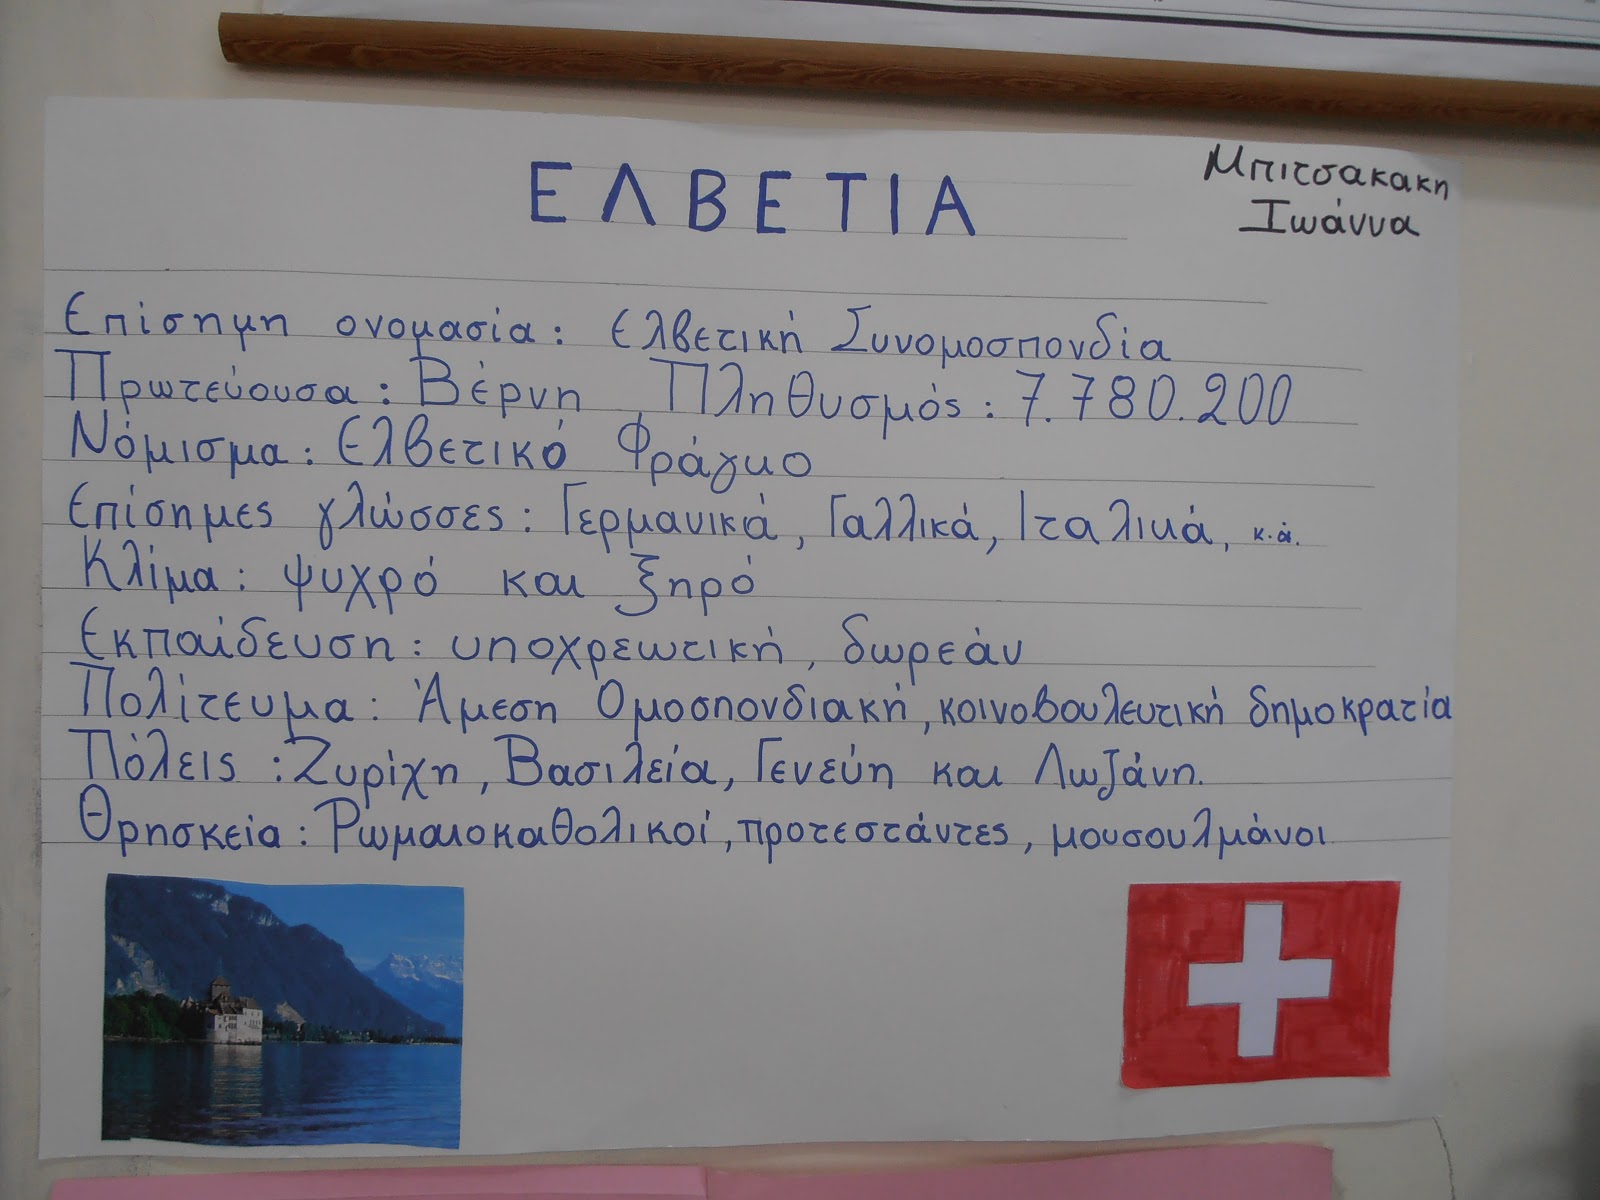 ΕΛΒΕΤΙΑ
Μπιτσακακη
Ιωάννα
Επίσημη ονομασία: Ελβετική Συνομοσπονδία
Πρωτεύουσα: Βέρνη Πληθυσμός: 7.780.200
Νόμισμα: Ελβετικό Φράγκο
Επίσημες γλώσσες: Γερμανικά, Γαλλικά, Ιταλικά, κ.ά.
Κλίμα: ψυχρό και ξηρό
Εκπαίδευση: υποχρεωτική, δωρεάν
Πολίτευμα: Άμεση Ομοσπονδιακή, κοινοβουλευτική δημοκρατία
Πόλεις: Ζυρίχη, Βασιλεία, Γενεύη και Λωζάνη.
Θρησκεία: Ρωμαιοκαθολικοί, προτεστάντες, μουσουλμάνοι.